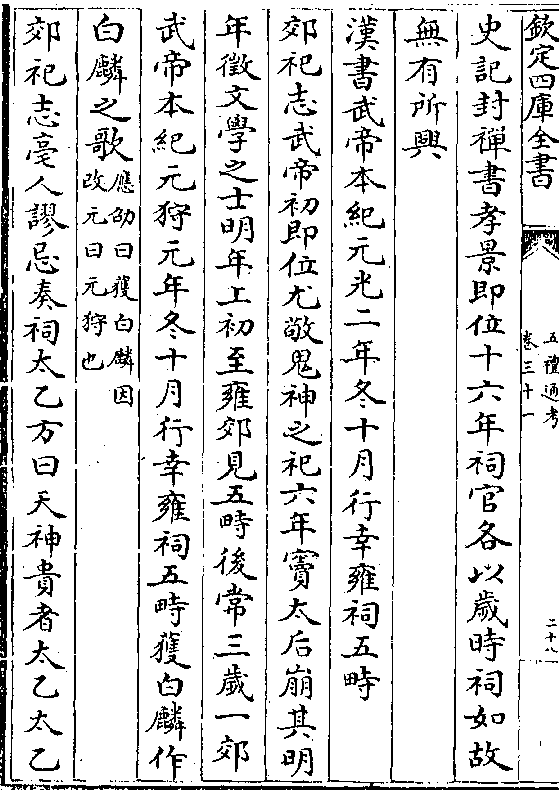 欽定四庫全書
五禮通考
卷三十一
二十八
史記封禪書孝景即位十六年祠官各以歲時祠如故
無有所興
漢書武帝本紀元光二年冬十月行幸雍祠五畤
郊祀志武帝初即位尤敬鬼神之祀六年竇太后崩其明
年徵文學之士明年上初至雍郊見五畤後常三歲一郊
武帝本紀元狩元年冬十月行幸雍祠五畤獲白麟作
白麟之歌應劭曰獲白麟因
改元曰元狩也
郊祀志亳人謬忌奏祠太乙方曰天神貴者太乙太乙